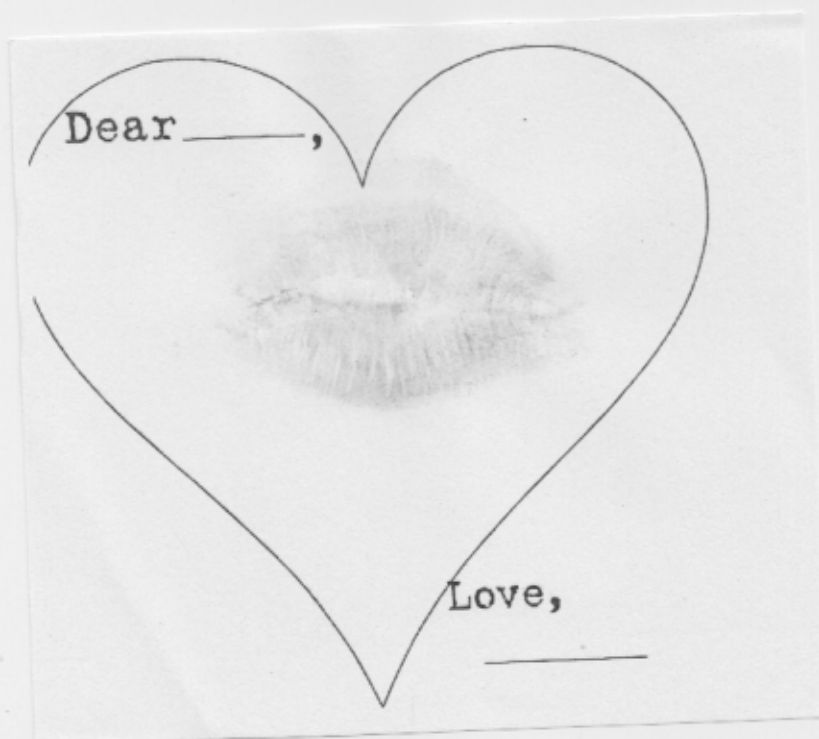 Dear______,
Love,
______